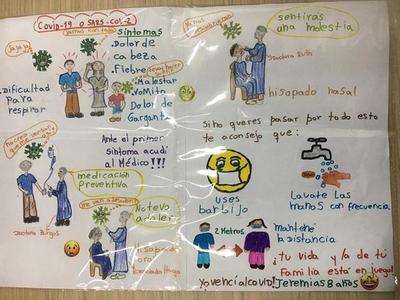 Covid-19 o SARS-cov-2
Vamos con todo
Síntomas
Jajaja
Dolor de
cabeza
Fiebre
Malestar
Vomito
Dolor de
Garganta
Dificultad
para
respirar
Vamos
sentirás
una molestia
Doctora Ruth
hisopado nasal
Ante el primer
síntoma acudí
al Médico!!!
medicación
Preventiva
Doctora Burgos
No te va a
doler
Hisopado
oral
Si no queres pasar por todo esto
te aconsejo que:
Uses
barbijo
Lavate las
manos con frecuencia
2 Metros
Mantene
la distancia
¡tu vida y la de tu
Familia está en juego!
Yo vencí al covid!
Jeremías 8 años